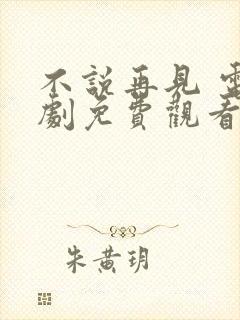 不說再見 電
劇免費觀看
朱黃玥